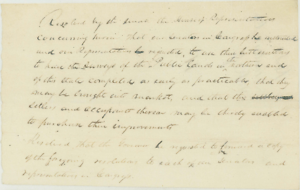 Resolved by the Senate and House of Representatives
concurring herein That our Senators in Congress be instructed
and our Representatives be requested to use their best exertions
to have the Surveys of the Public Lands in the northern end
of this State completed as early as practicable, that they
may be brought into market, and that the
settlers and occupants thereon may be thereby enabled
to purchase their improvements
Resolved that the Governor be requested to forward a copy
of the foregoing resolutions to each of our Senators and
representatives in Congress